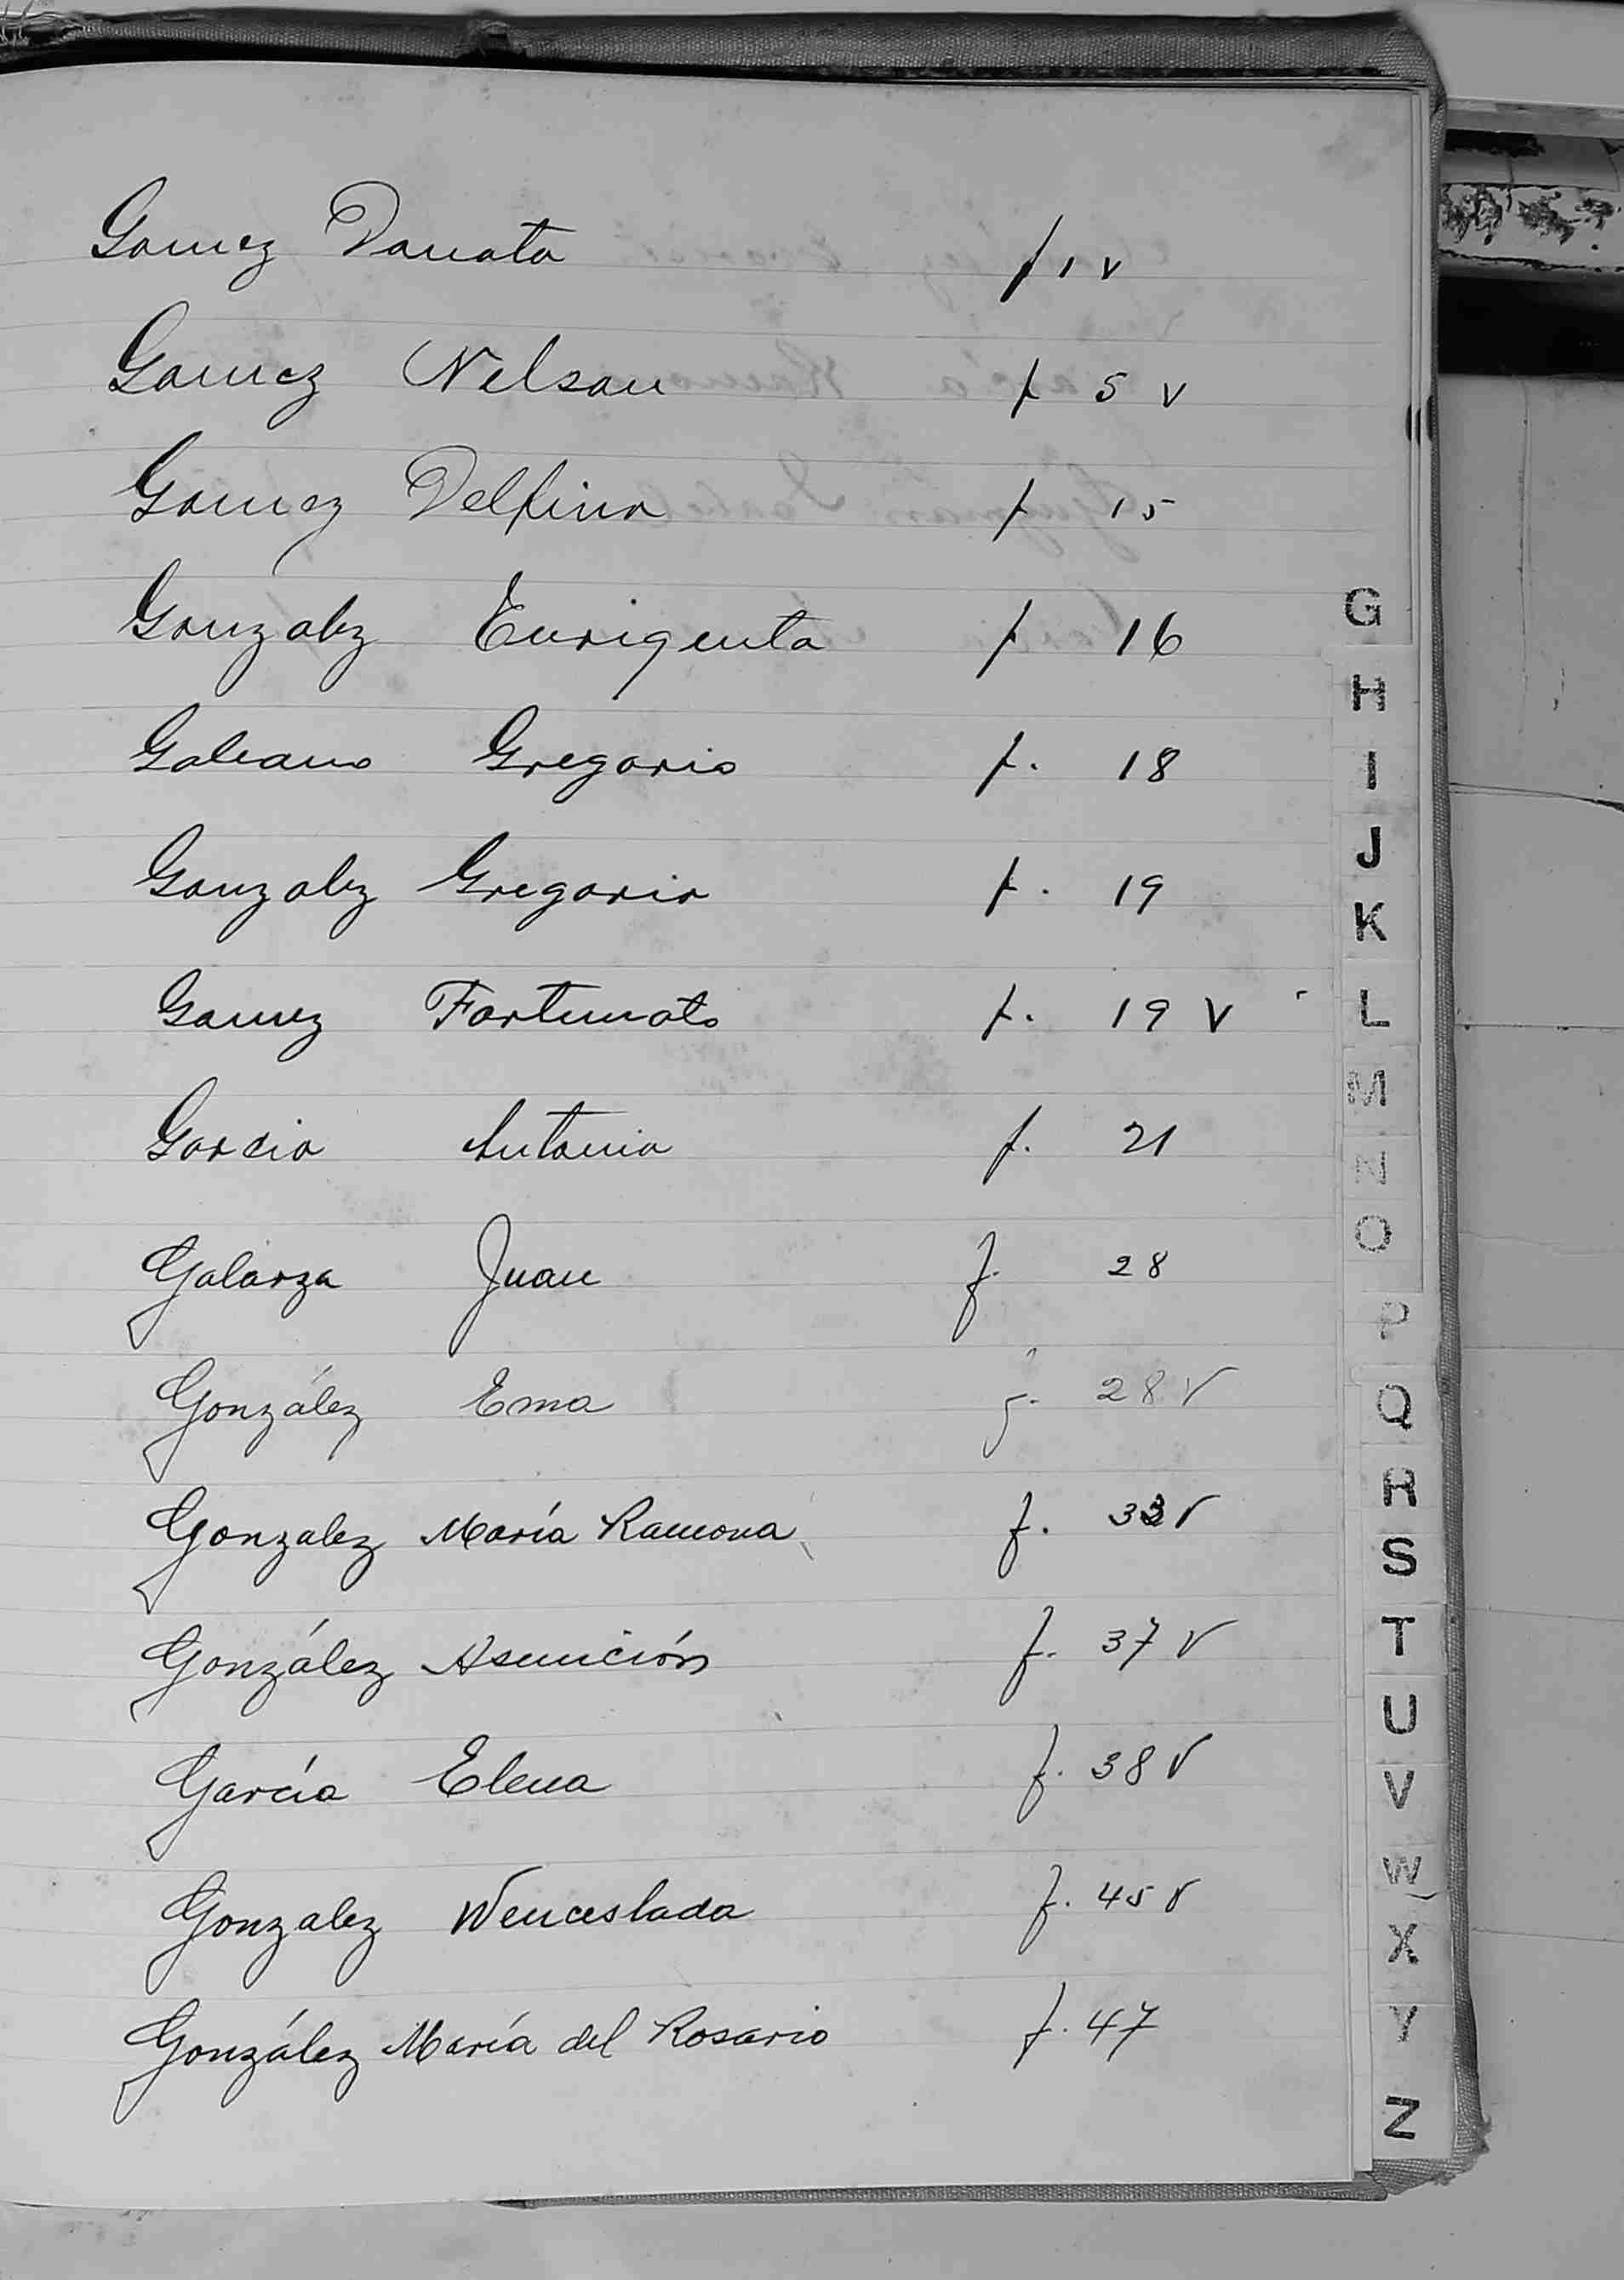 Gomez Donata f 1 v
Gomez Nelson f 5 v
Gomez Delfina f 15
Gonzalez Enrigueta f 16
Galeano Gregorio f. 18
Gonzalez Gregoria f. 19
Gomez Fortunato f. 19 v
Garcia Antonia f. 21
Galarza Juan f. 28
González Ema f. 28 V
Gonzalez María Ramona f. 33 V
González Asunción f. 37 V
García Elena f. 38 V
Gonzalez Wenceslada f. 45 V
González María del Rosario f. 47
G
H
I
J
K
L
M
N
O
P
Q
R
S
T
U
V
W
X
Y
Z